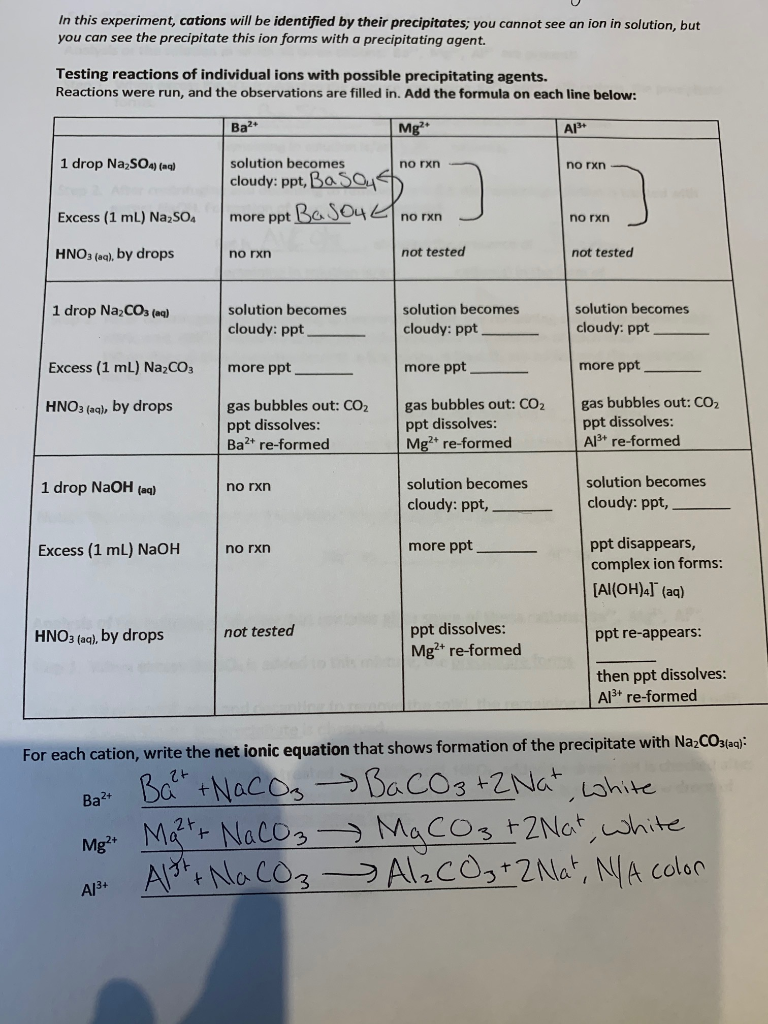 In this experiment, cations will be identified by their precipitates; you cannot see an ion in solution, but
you can see the precipitate this ion forms with a precipitating agent.
Testing reactions of individual ions with possible precipitating agents.
Reactions were run, and the observations are filled in. Add the formula on each line below:
Ba²⁺ Mg²⁺ Al³⁺
1 drop Na₂SO₄₎ (aq) solution becomes no rxn no rxn
cloudy: ppt, BaSO₄
Excess (1 mL) Na₂SO₄ more ppt BaSO₄ no rxn no rxn
HNO₃ (aq), by drops no rxn not tested not tested
1 drop Na₂CO₃ (aq) solution becomes solution becomes solution becomes
cloudy: ppt ______ cloudy: ppt ______ cloudy: ppt ______
Excess (1 mL) Na₂CO₃ more ppt ______ more ppt ______ more ppt ______
HNO₃ (aq), by drops gas bubbles out: CO₂ gas bubbles out: CO₂ gas bubbles out: CO₂
ppt dissolves: ppt dissolves: ppt dissolves:
Ba²⁺ re-formed Mg²⁺ re-formed Al³⁺ re-formed
1 drop NaOH (aq) no rxn solution becomes solution becomes
cloudy: ppt, ______ cloudy: ppt, ______
Excess (1 mL) NaOH no rxn more ppt ______ ppt disappears,
complex ion forms:
[Al(OH)₄]⁻ (aq)
HNO₃ (aq), by drops not tested ppt dissolves: ppt re-appears:
Mg²⁺ re-formed ______
then ppt dissolves:
Al³⁺ re-formed
For each cation, write the net ionic equation that shows formation of the precipitate with Na₂CO₃(aq):
Ba²⁺ Ba²⁺ + NaCO₃ → BaCO₃ + 2Na⁺, white
Mg²⁺ Mg²⁺ + NaCO₃ → MgCO₃ + 2Na⁺, white
Al³⁺ Al³⁺ + NaCO₃ → Al₂CO₃ + 2Na⁺, N/A color